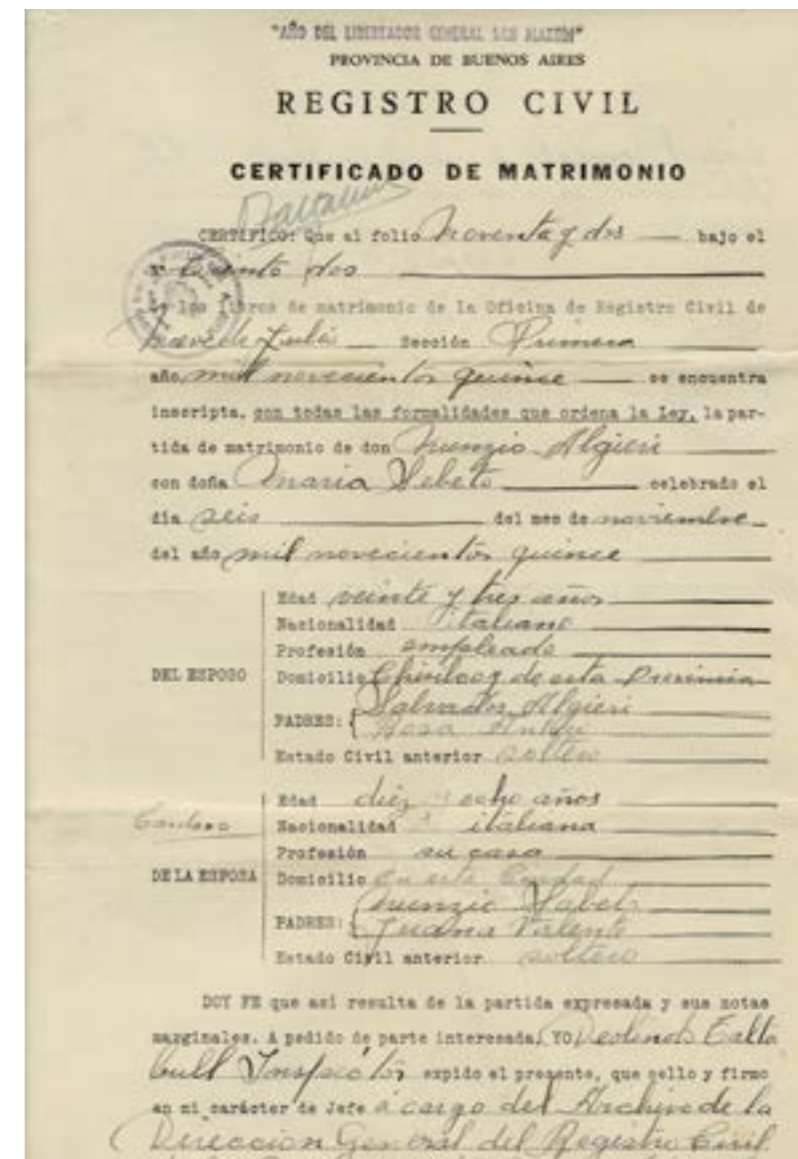 "AÑO DEL LIBERTADOR GENERAL SAN MARTIN"
PROVINCIA DE BUENOS AIRES
REGISTRO CIVIL
CERTIFICADO DE MATRIMONIO
CERTIFICO: Que al folio noventa y dos bajo el
nº Ciento dos
de los libros de matrimonio de la Oficina de Registro Civil de
Nueve de Julio Sección Primera
año mil novecientos quince se encuentra
inscripta, con todas las formalidades que ordena la Ley, la par-
tida de matrimonio de don Nunzio Algieri
con doña Maria Sebeto celebrado el
día seis del mes de noviembre
del año mil novecientos quince
Edad veinte y tres años
Nacionalidad italiano
Profesión empleado
DEL ESPOSO Domicilio Chivilcoy de esta Provincia
PADRES: { Salvador Algieri
Rosa
Estado Civil anterior soltero
Edad diez y ocho años
Nacionalidad italiana
Profesión su casa
DE LA ESPOSA Domicilio En esta Ciudad
PADRES: { Nunzio
Juana Valente
Estado Civil anterior soltera
DOY FE que así resulta de la partida expresada y sus notas
marginales. A pedido de parte interesada, YO
Inspector expido el presente, que sello y firmo
en mi carácter de Jefe a cargo del Archivo de la
Dirección General del Registro Civil